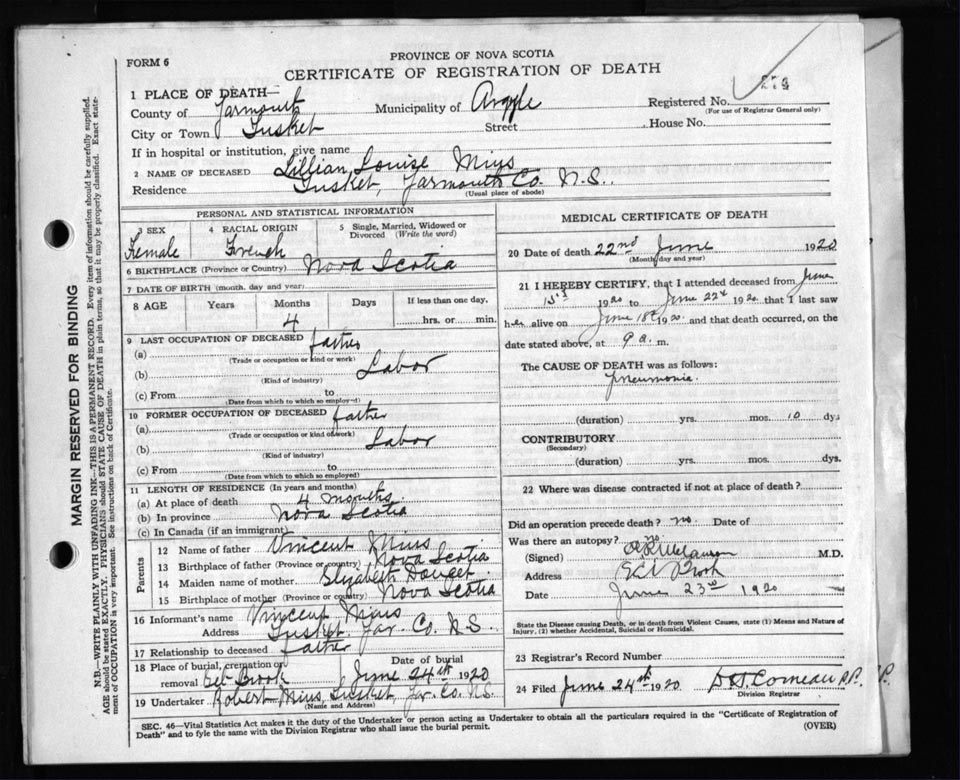 FORM 6
PROVINCE OF NOVA SCOTIA
CERTIFICATE OF REGISTRATION OF DEATH
1 PLACE OF DEATH—
County of Yarmouth Municipality of Argyle Registered No.
(For use of Registrar General only)
City or Town Tusket Street House No.
If in hospital or institution, give name
2 NAME OF DECEASED Lillian Louise Mius
Residence Tusket, Yarmouth Co. N.S.
(Usual place of abode)
PERSONAL AND STATISTICAL INFORMATION
3 SEX 4 RACIAL ORIGIN 5 Single, Married, Widowed or Divorced (Write the word)
Female French
6 BIRTHPLACE (Province or Country) Nova Scotia
7 DATE OF BIRTH (month, day and year)
8 AGE Years Months Days If less than one day,
4 hrs. or min.
9 LAST OCCUPATION OF DECEASED father
(a)
(Trade or occupation or kind or work)
(b) Labor
(Kind of industry)
(c) From to
(Date from which to which so employed)
10 FORMER OCCUPATION OF DECEASED father
(a)
(Trade or occupation or kind of work)
(b) Labor
(Kind of industry)
(c) From to
(Date from which to which so employed)
11 LENGTH OF RESIDENCE (In years and months)
(a) At place of death 4 months
(b) In province Nova Scotia
(c) In Canada (if an immigrant)
Parents
12 Name of father Vincent Mius
13 Birthplace of father (Province or country) Nova Scotia
14 Maiden name of mother Elizabeth Doucet
15 Birthplace of mother (Province or country) Nova Scotia
16 Informant's name Vincent Mius
Address Tusket, Yar. Co. N.S.
17 Relationship to deceased Father
18 Place of burial, cremation or removal Eel Brook Date of burial June 24th 1920
19 Undertaker Robert Mius Tusket, Yar. Co. N.S.
(Name and Address)
MEDICAL CERTIFICATE OF DEATH
20 Date of death 22nd June 1920
(Month, day and year)
21 I HEREBY CERTIFY, that I attended deceased from June
1st 1920 to June 22d 1920 that I last saw
her alive on June 18th 1920 and that death occurred, on the
date stated above, at 9 a. m.
The CAUSE OF DEATH was as follows:
Pneumonia.
(duration) yrs. mos. 10 dys
CONTRIBUTORY
(Secondary)
(duration) yrs. mos. dys.
22 Where was disease contracted if not at place of death?
Did an operation precede death? no. Date of
Was there an autopsy? no
(Signed) M.D.
Address Eel Brook
Date June 23rd 1920
State the Disease causing Death, or in death from Violent Causes, state (1) Means and Nature of
Injury, (2) whether Accidental, Suicidal or Homicidal.
23 Registrar's Record Number
24 Filed June 24th 1920 Comeau
Division Registrar
SEC. 46—Vital Statistics Act makes it the duty of the Undertaker or person acting as Undertaker to obtain all the particulars required in the "Certificate of Registration of
Death" and to fyle the same with the Division Registrar who shall issue the burial permit.
(OVER)
MARGIN RESERVED FOR BINDING
N.B.—WRITE PLAINLY WITH UNFADING INK—THIS IS A PERMANENT RECORD. Every item of information should be carefully supplied.
AGE should be stated EXACTLY. PHYSICIANS should STATE CAUSE OF DEATH in plain terms, so that it may be properly classified. Exact state-
ment of OCCUPATION is very important. See instructions on back of Certificate.